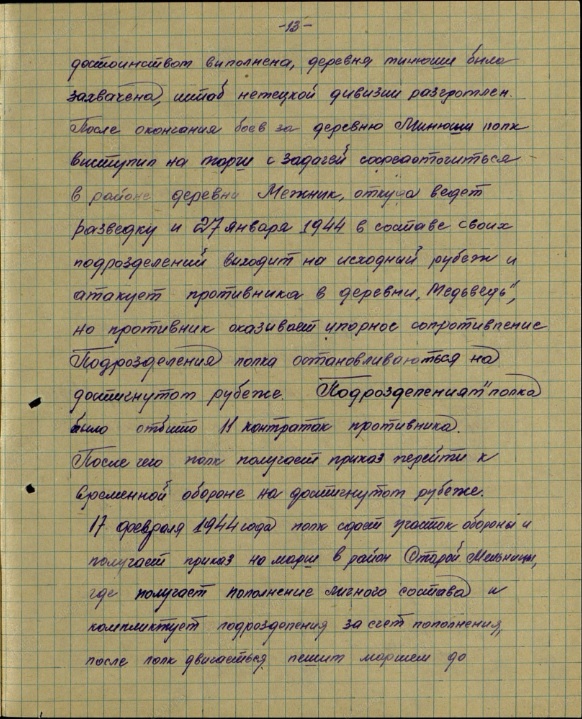 -13-
достоинством выполнена, деревня Минюши была
захвачена, штаб немецкой дивизии разгромлен.
После окончания боев за деревню Минюши полк
выступил на марш с задачей сосредоточиться
в районе деревни Межник, откуда ведет
разведку и 27 января 1944 в составе своих
подрозделений виходит на исходный рубеж и
атакует противника в деревни „Медьведь",
но противник оказивает упорное сопротивление
Подрозделения полка остановливаються на
достигнутом рубеже. Подрозделениям" полка
было отбито 11 контратак противника.
После чего полк получает приказ перейти к
временной обороне на достигнутом рубеже.
17 февраля 1944 года полк сдает участок обороны и
получает приказ на марш в район Старой Мельницы,
где получает пополнение личного состава и
комплектует подрозделения за счет пополнения,
после полк двигаеться пешим маршем до